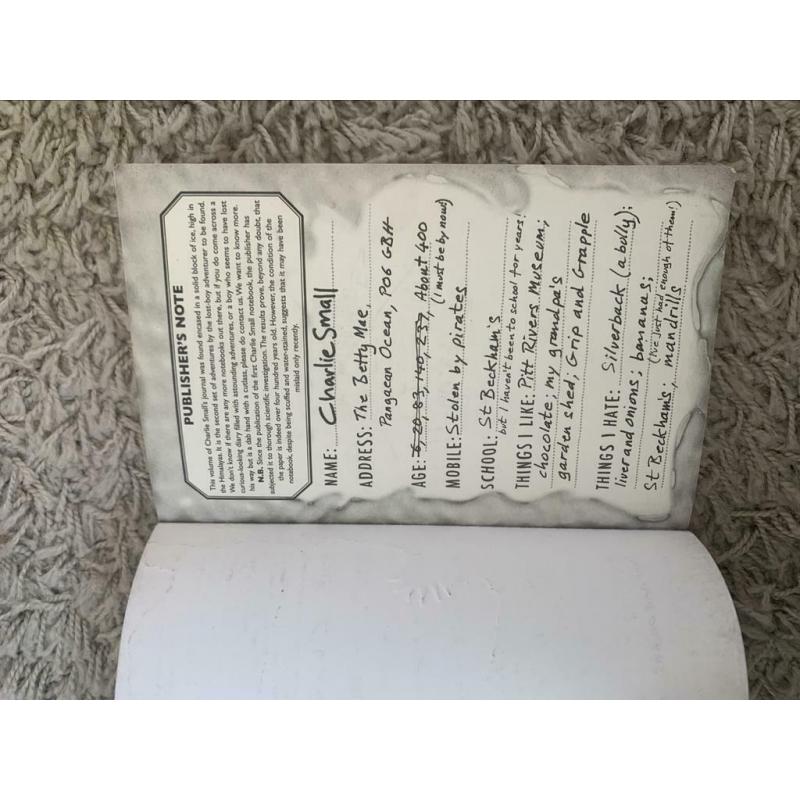 PUBLISHER'S NOTE
This volume of Charlie Small's journal was found encased in a solid block of ice, high in
the Himalayas. It is the second set of adventures by the lost-boy adventurer to be found.
We don't know if there are any more notebooks out there, but if you do come across a
curious-looking diary filled with astounding adventures, or a boy who seems to have lost
his way but is a dab hand with a cutlass, please do contact us. We want to know more.
N.B. Since the publication of the first Charlie Small notebook, the publisher has
subjected it to thorough scientific investigation. The results prove, beyond any doubt, that
the paper is indeed over four hundred years old. However, the condition of the
notebook, despite being scuffed and water-stained, suggests that it may have been
mislaid only recently.
NAME: Charlie Small
ADDRESS: The Betty Mae,
Pangaean Ocean, PO6 GBH
AGE: 5, 20, 83, 140, 257, About 400
(I must be by now!)
MOBILE: Stolen by pirates
SCHOOL: St Beckham's
but I haven't been to school for years!
THINGS I LIKE: Pitt Rivers Museum;
chocolate; my grandpa's
garden shed; Grip and Grapple
THINGS I HATE: Silverback (a bully);
liver and onions; bananas;
(I've just had enough of them!)
St Beckham's; mandrills